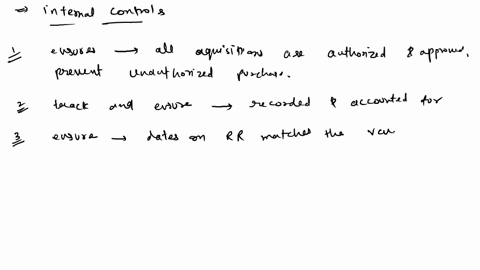 ⇒ internal controls
1 ensures → all aquisitions are authorized & approved,
prevent unauthorized purchase.
2 track and ensure → recorded & accounted for
3 ensure → dates on RR matches the